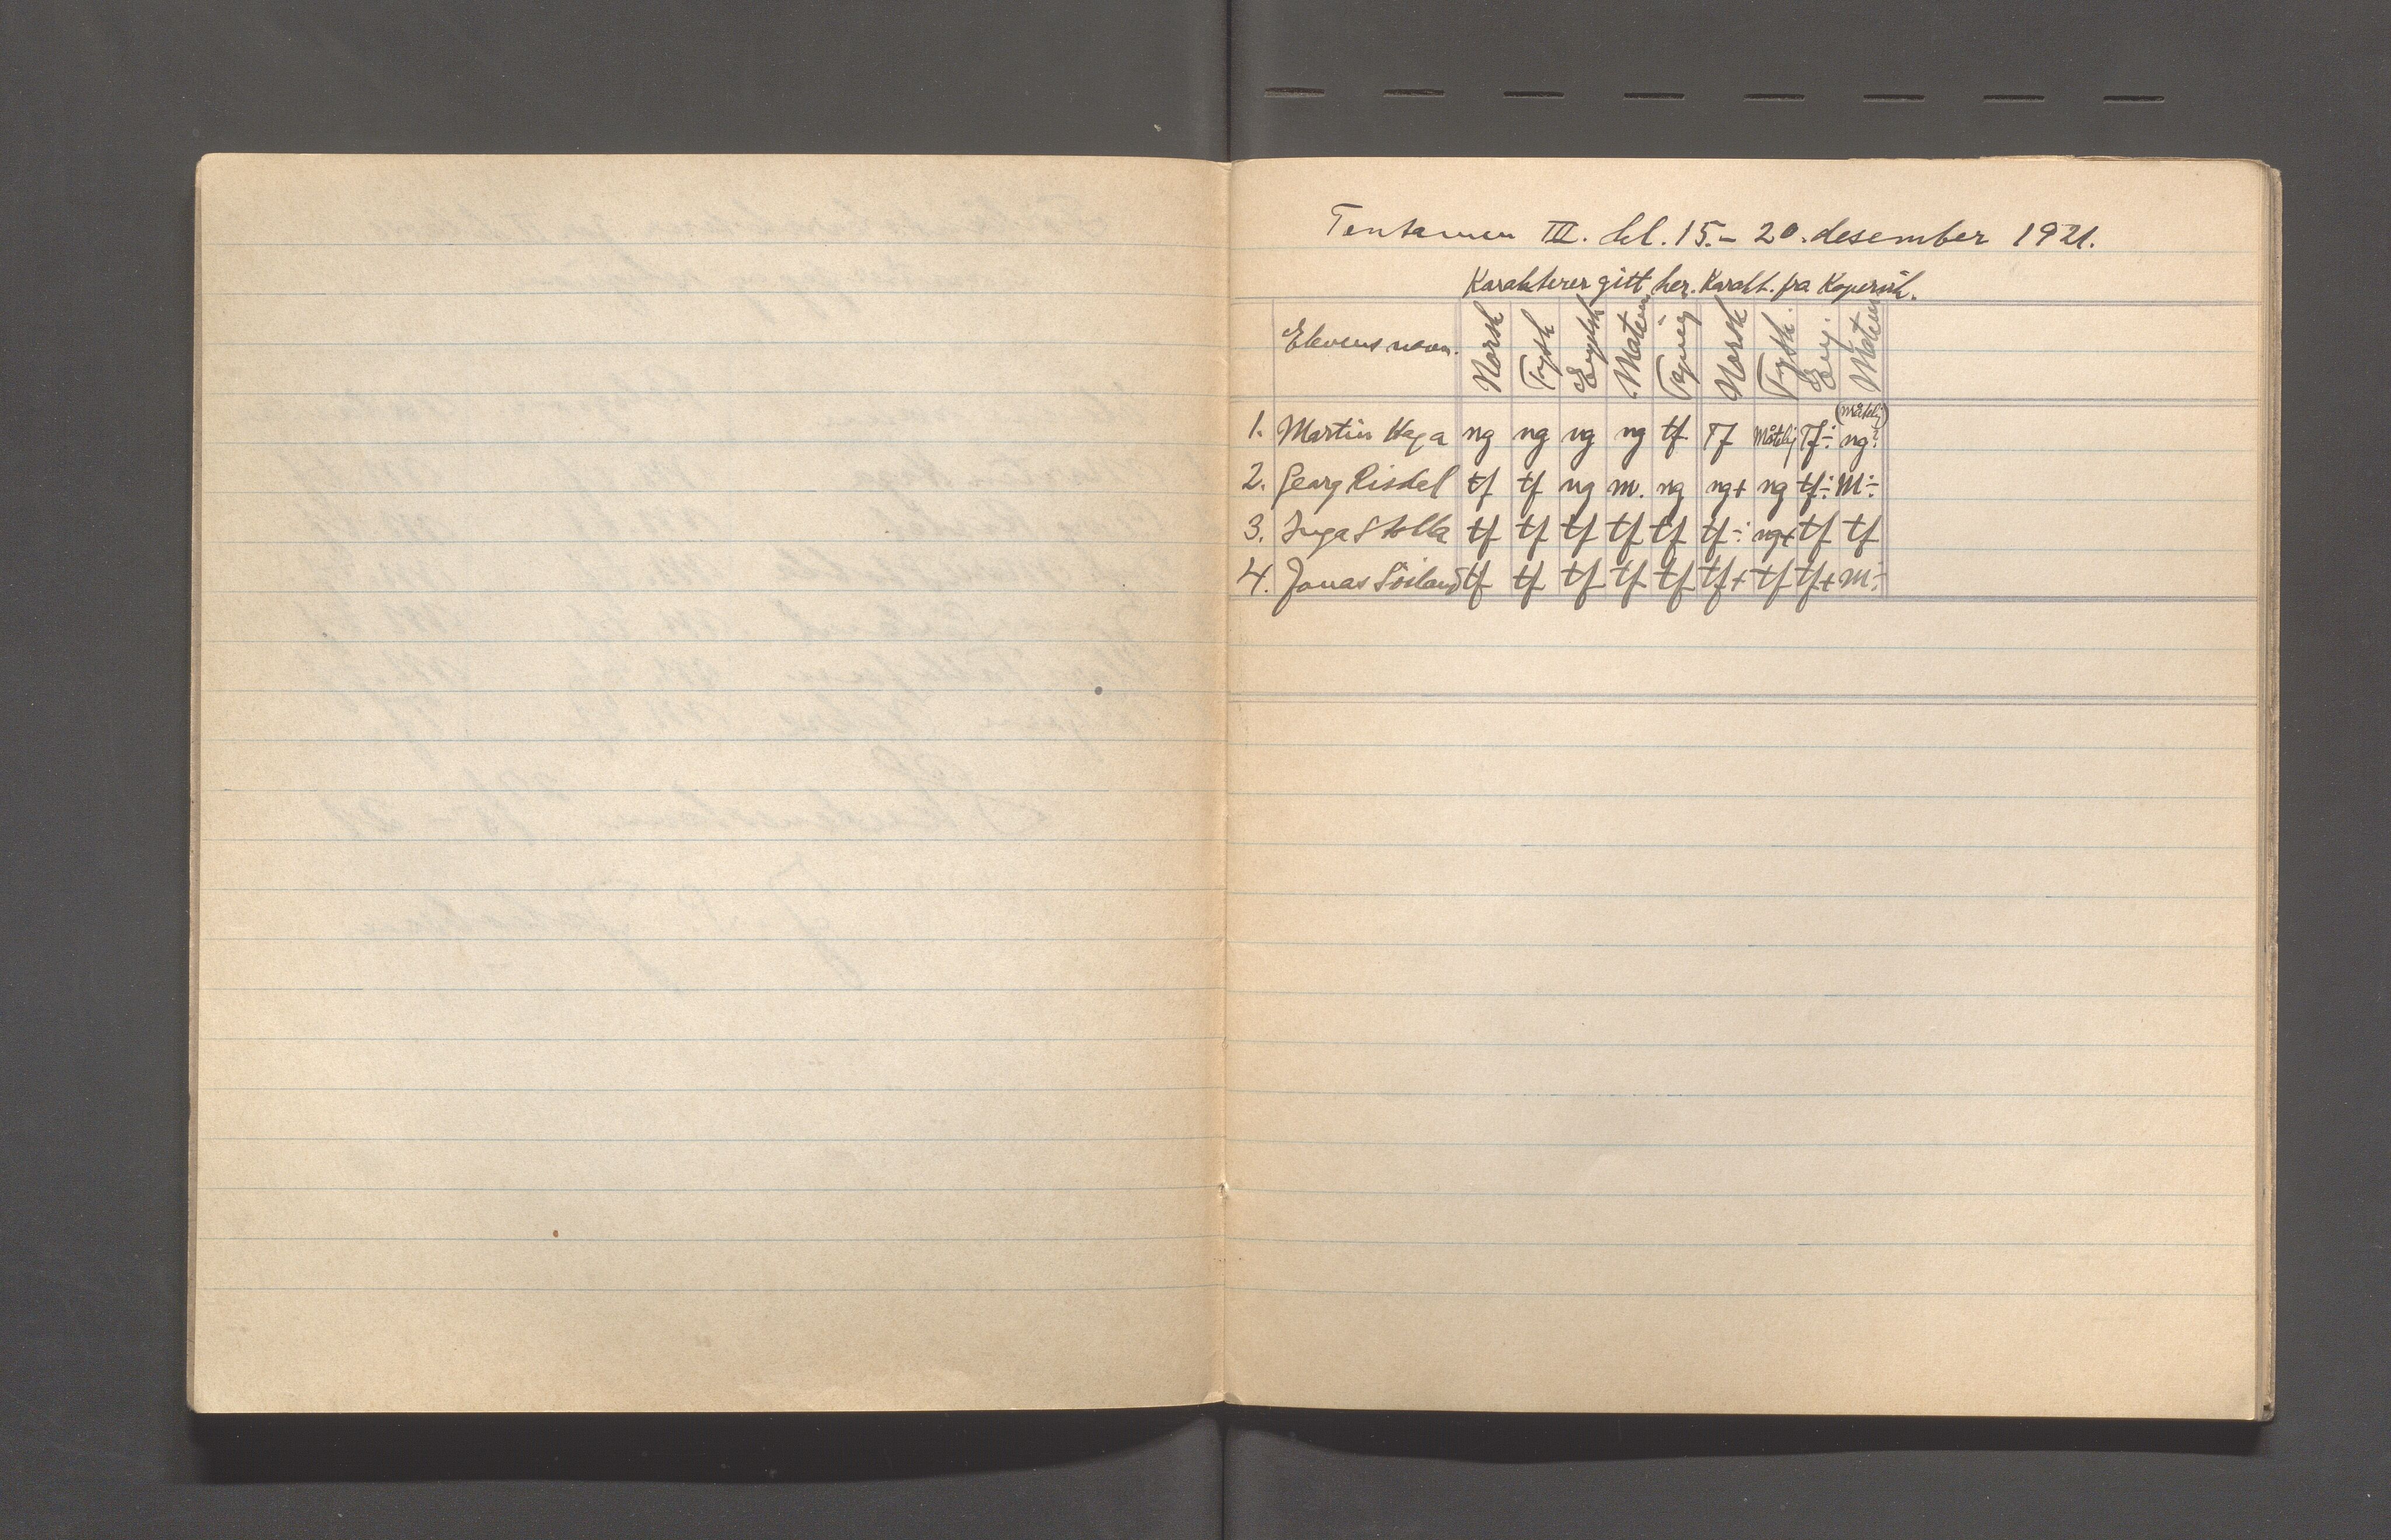 Tentamen III. kl. 15.- 20. desember 1921.
Karakterer gitt her. Karakt. fra Kopervik.
Elevens navn. Norsk Tysk Engelsk Matem Tegning Norsk Tysk. Eng. Matem
(måtelig)
1. Martin Haga ng ng ng ng tf. Tf Måtelig Tf÷ ng÷
2. Georg Risdel tf tf ng m. ng ng+ ng tf÷ M÷
3. Inga Stolla tf tf tf tf tf tf÷ ng+ tf tf
4. Jonas Söiland tf tf tf tf tf tf+ tf tf+ M÷